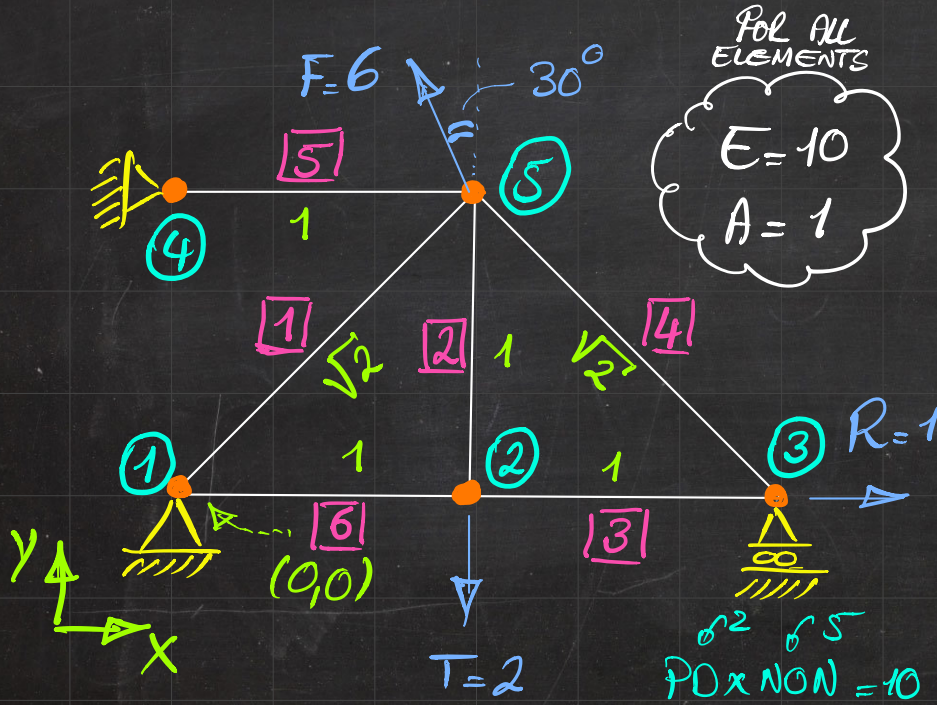 FOR ALL
ELEMENTS
E=10
A=1
F=6
30°
5
1
4
5
1
√2
2
1
√2
4
1
1
2
1
3
R=1
6
3
(0,0)
Y
X
T=2
2 5
PD x NON =10